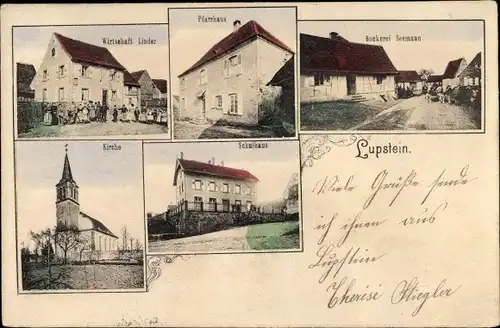 Wirtschaft Linder
Pfarrhaus
Backerei Seemann
Kirche
Schulhaus
Lupstein.
Viele Grüße sende
ich ihnen aus
Lupstein
Therese Stiegler